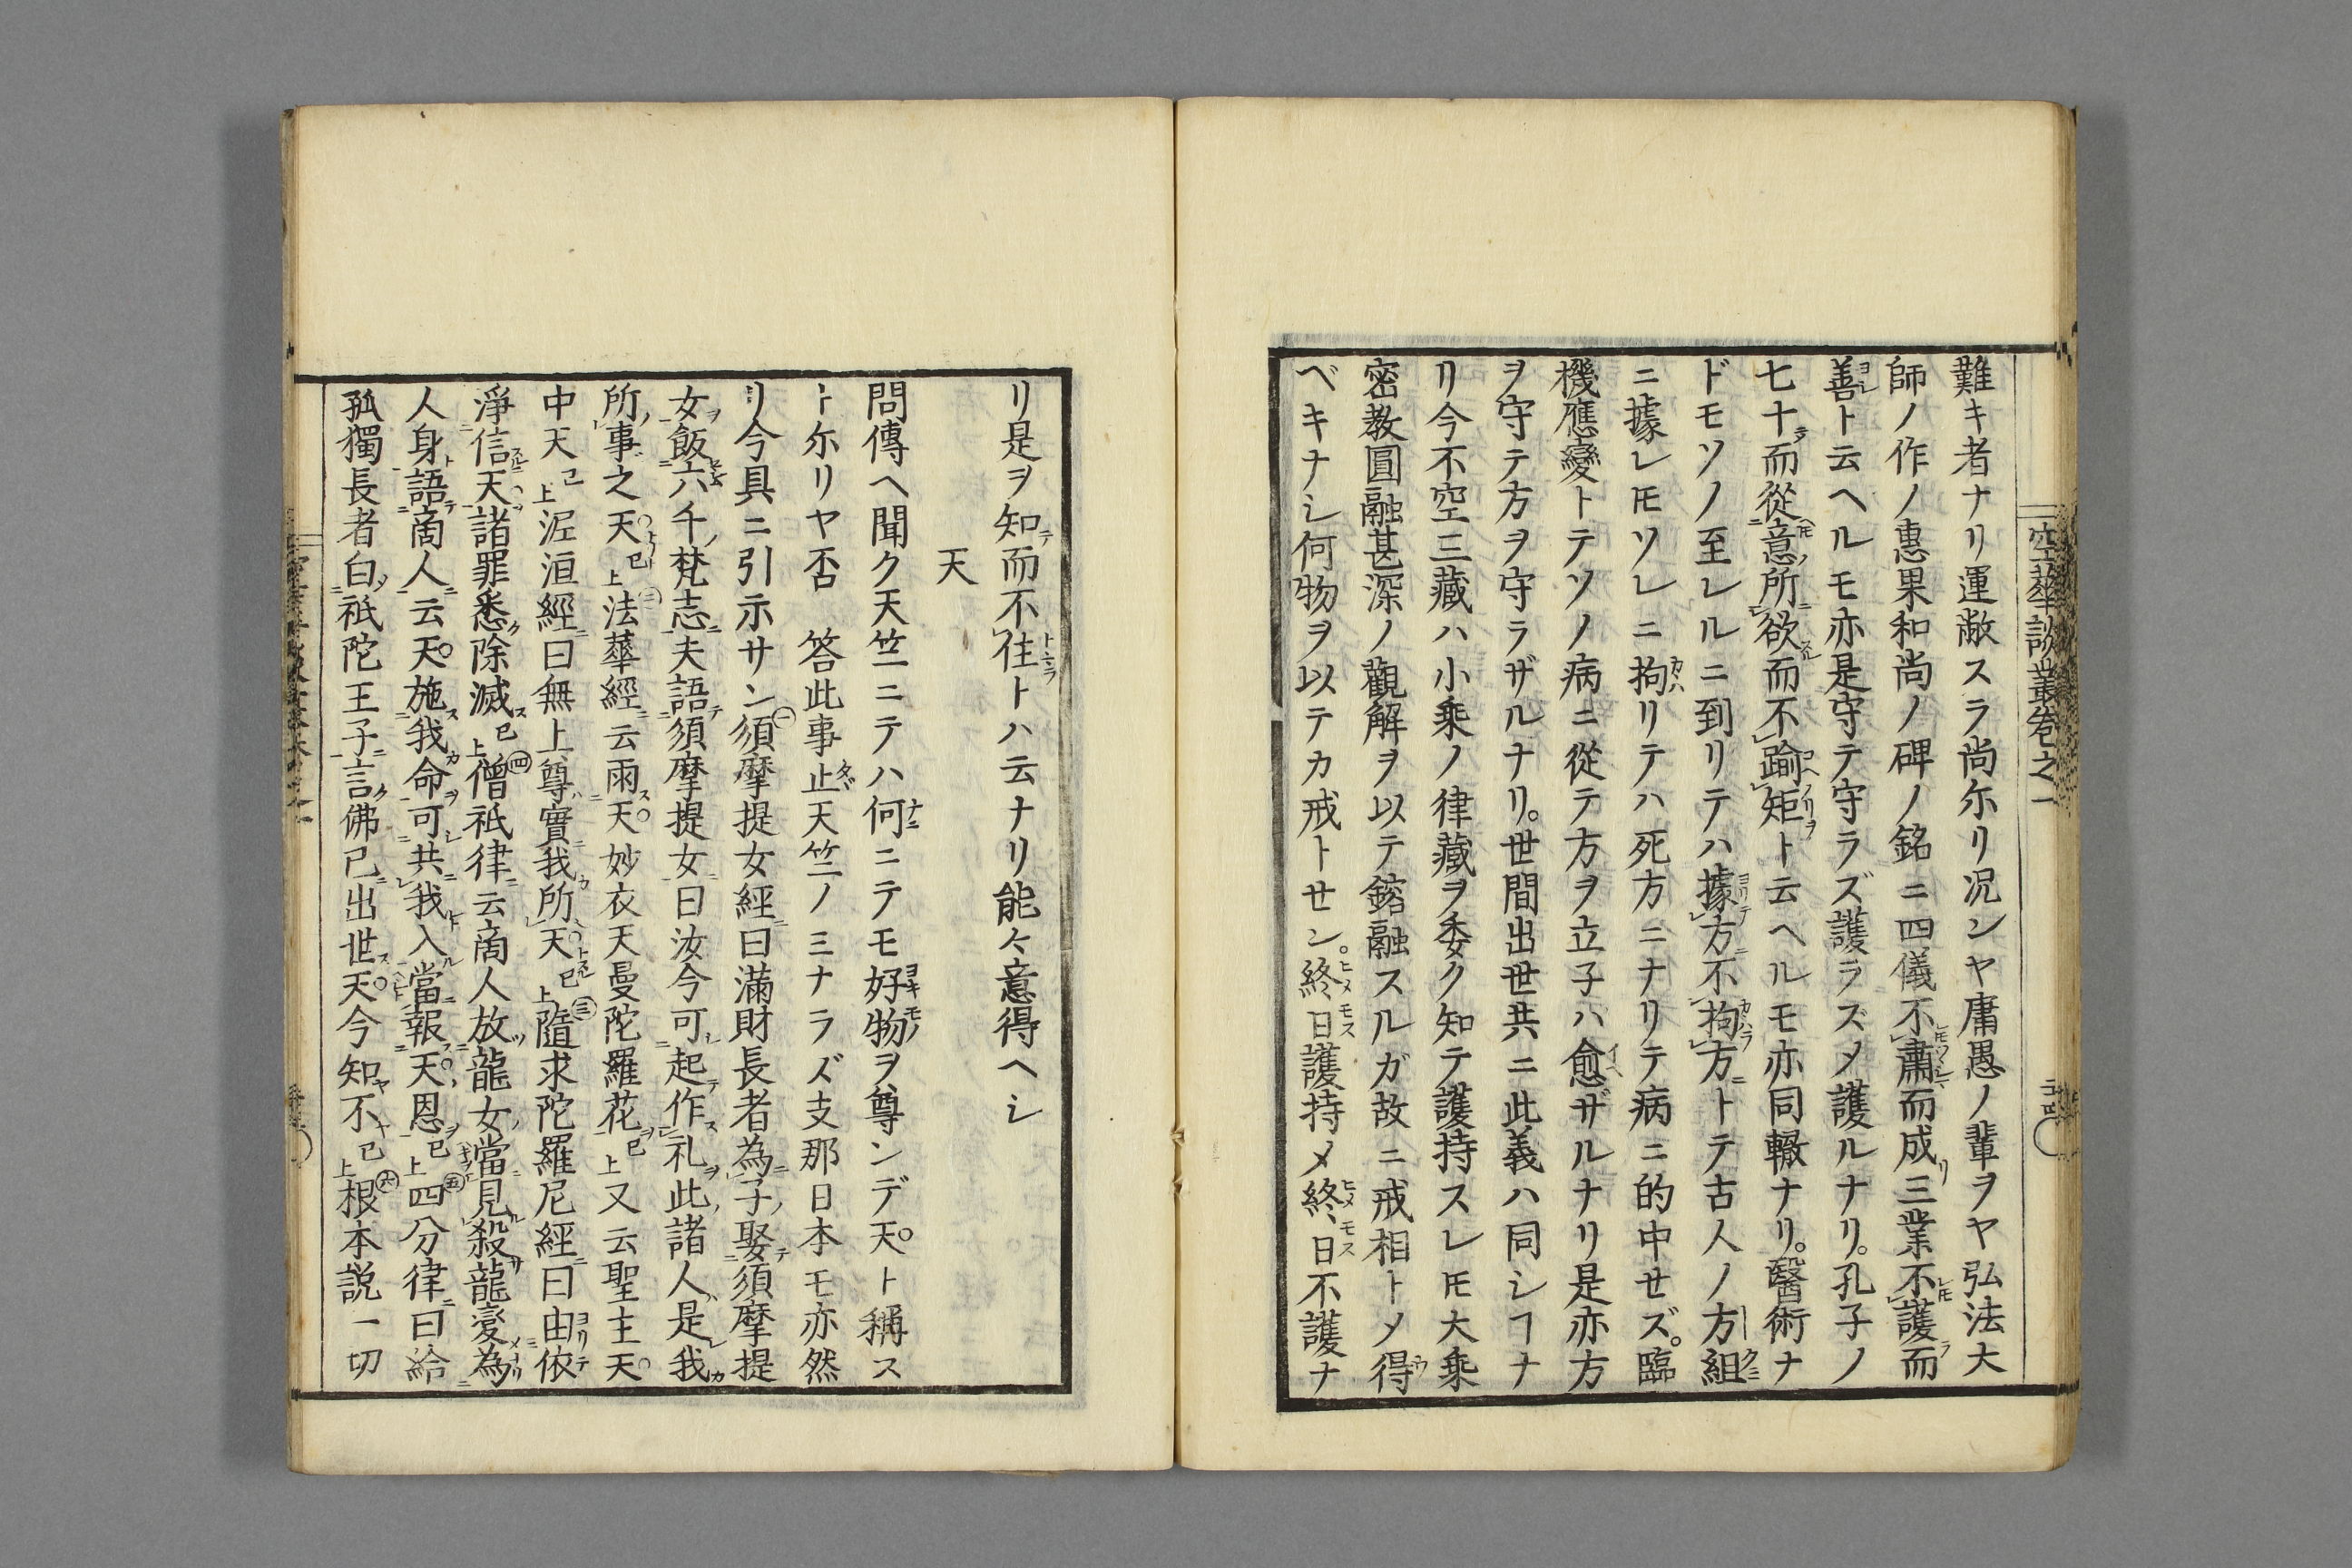 空華談叢卷之一
難キ者ナリ運敞スラ尚尓リ況ンヤ庸愚ノ輩ヲヤ弘法大
師ノ作ノ惠果和尚ノ碑ノ銘ニ四儀不肅而成三業不護而
善ト云ヘルモ亦是守テ守ラズ護ラズメ護ルナリ。孔子ノ
七十而從意所欲而不踰矩ト云ヘルモ亦同轍ナリ。醫術ナ
ドモソノ至レルニ到リテハ據方不拘方トテ古人ノ方組
ニ據レ𪜈ソレニ拘リテハ死方ニナリテ病ニ的中セズ。臨
機應變トテソノ病ニ從テ方ヲ立子ハ愈ザルナリ是亦方
ヲ守テ方ヲ守ラザルナリ。世間出世共ニ此義ハ同シヿナ
リ今不空三藏ハ小乘ノ律藏ヲ委ク知テ護持スレ𪜈大乘
密教圓融甚深ノ觀解ヲ以テ鎔融スルガ故ニ戒相トメ得
ベキナシ何物ヲ以テカ戒トセン。終日護持メ終日不護ナ
リ是ヲ知而不住トハ云ナリ能々意得ヘシ
天
問傳ヘ聞ク天竺ニテハ何ニテモ好物ヲ尊ンデ天ト稱ス
ト尓リヤ否 答此事止天竺ノミナラズ支那日本モ亦然
リ今具ニ引示サン㊀須摩提女經曰滿財長者為子娶須摩提
女飯六千梵志夫語須摩提女曰汝今可起作礼此諸人是我
所事之天已上㊁法華經云雨天妙衣天曼陀羅花已上又云聖主天
中天已上泥洹經曰無上尊實我所天已上㊂隨求陀羅尼經曰由依
淨信天諸罪悉除滅已上㊃僧祇律云商人放龍女當見殺龍變為
人身語商人云天施我命可共我入當報天恩已上㊄四分律曰給
孤獨長者白祇陀王子言佛已出世天今知不已上㊅根本説一切